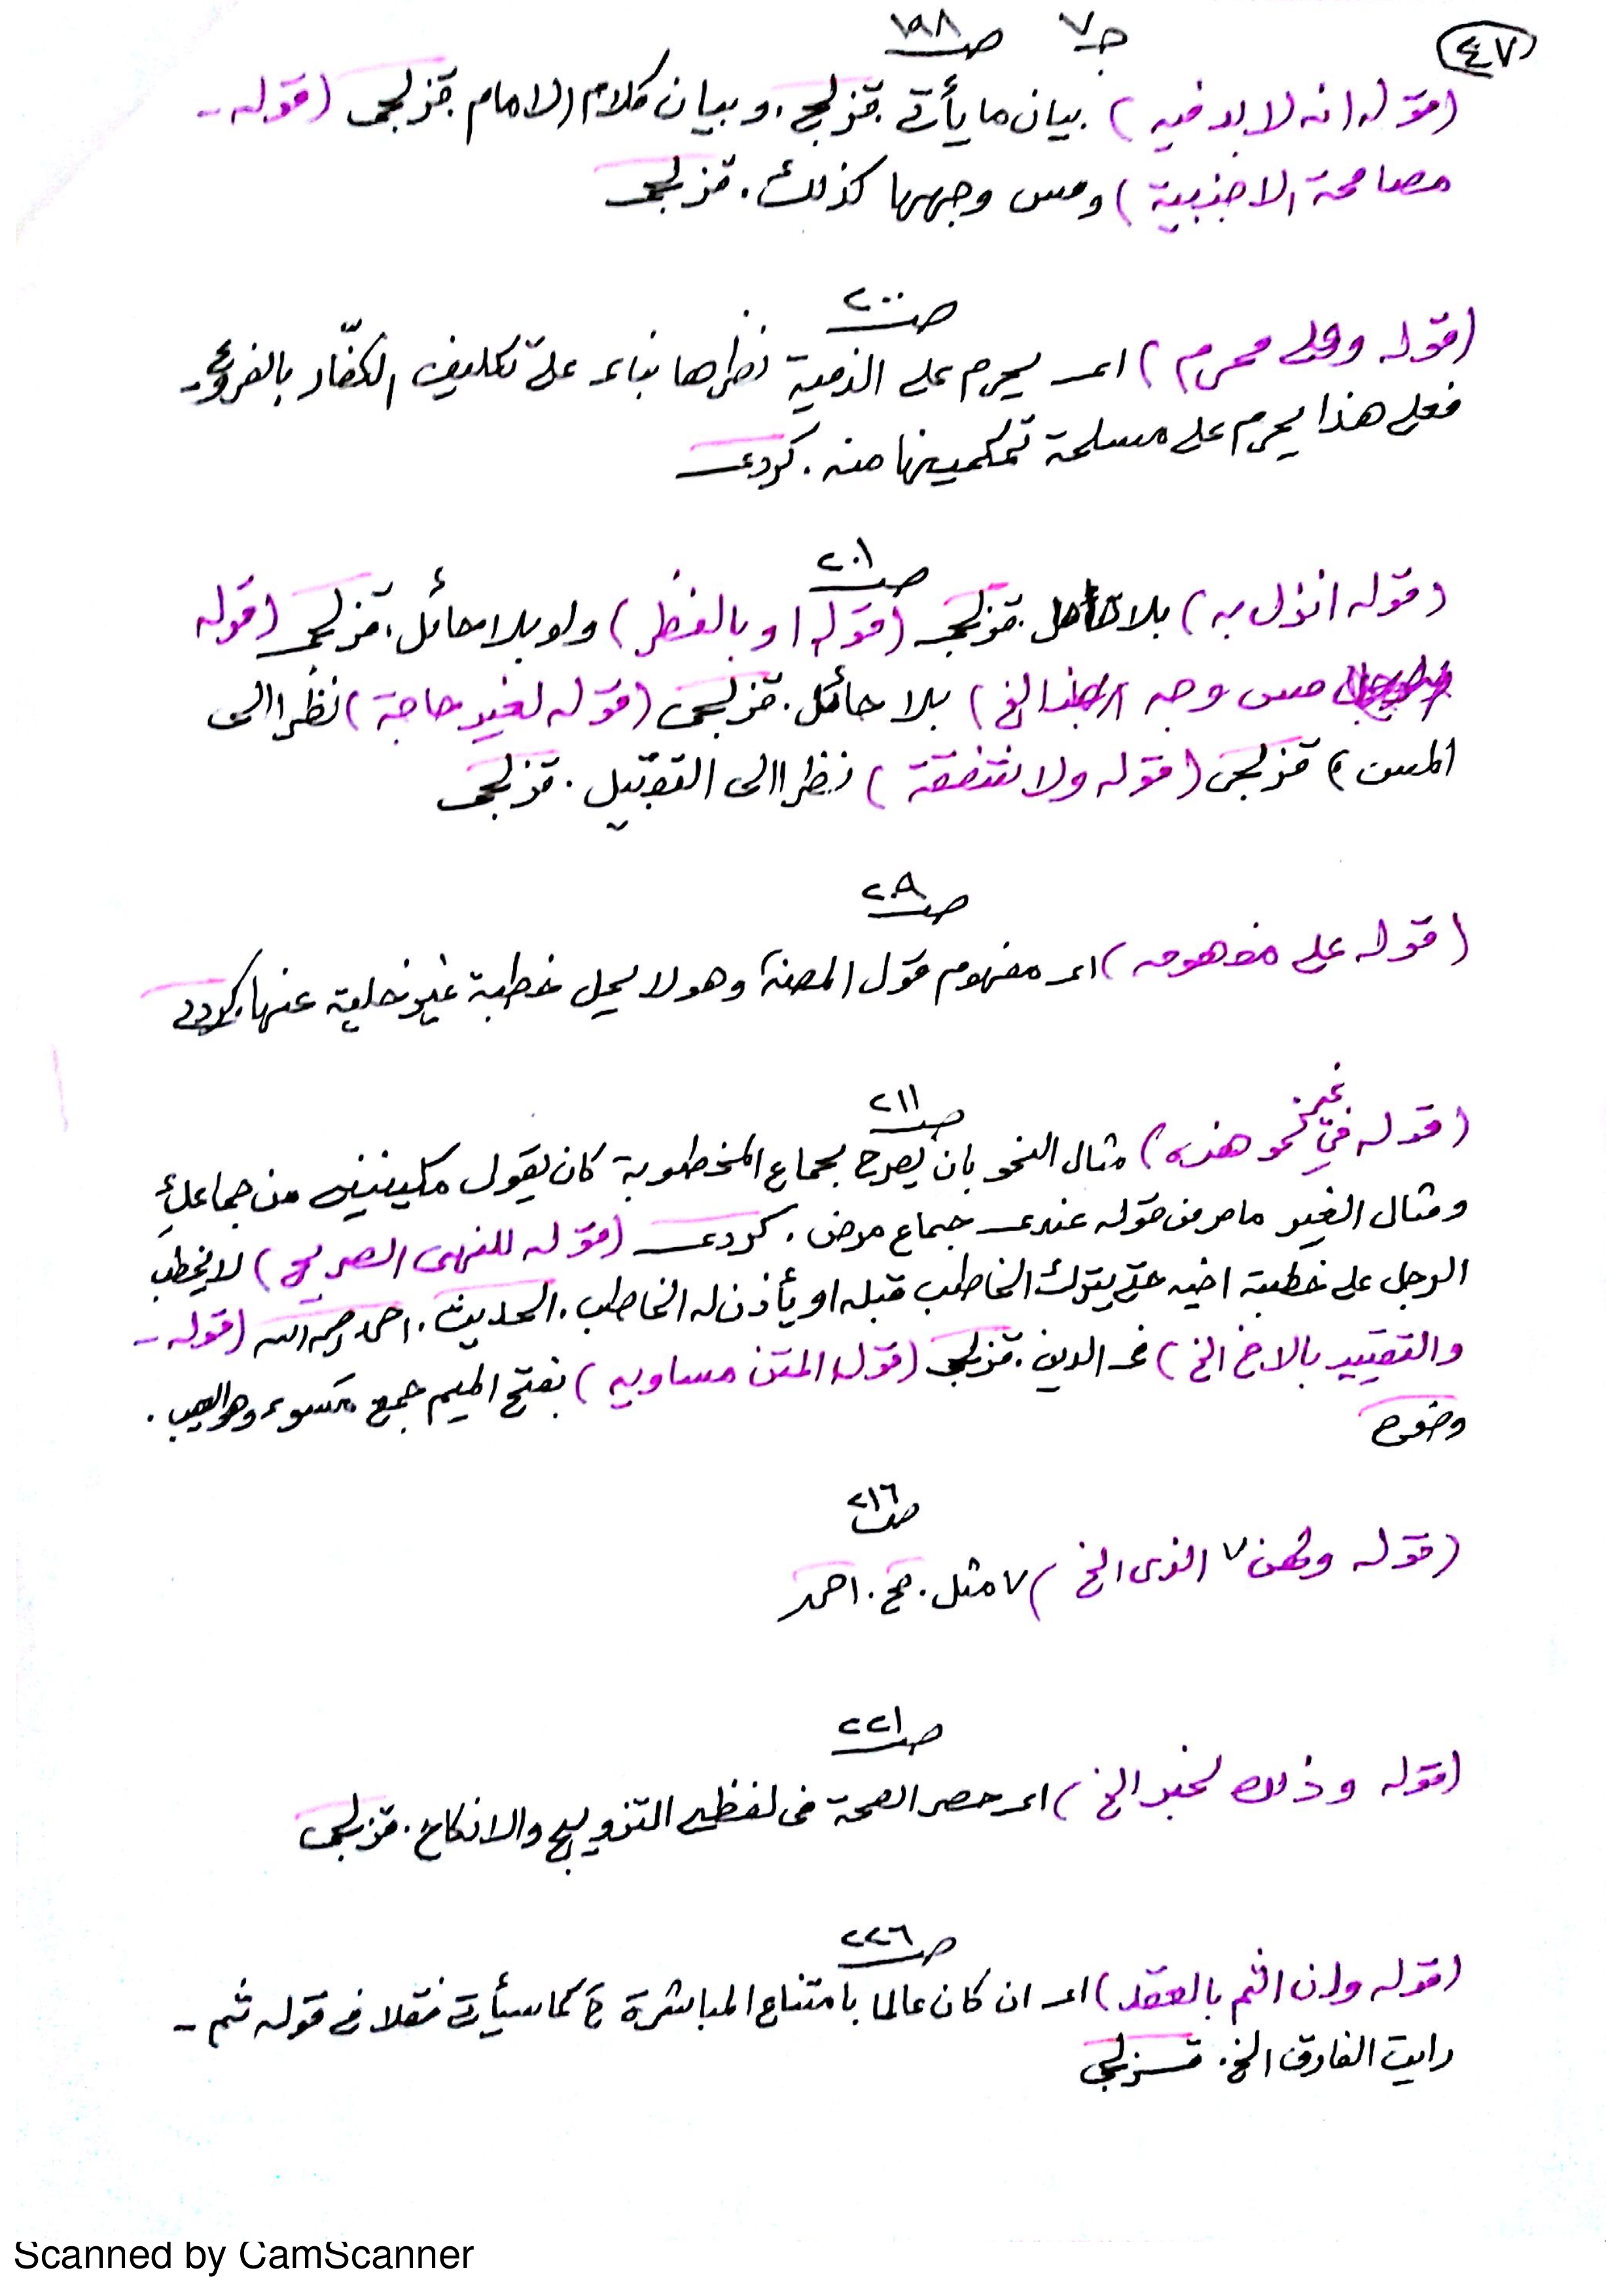 ٤٧
جـ٧ صـ١٩٨
(قوله انه لا بد فيه) بيان ما يأتى. قزلجى. وبيان كلام الامام. قزلجى (قوله -
مصافحة الاجنبية) ومس وجهها كذلك. قزلجى
صـ٢٠٠
(قوله وكل محرم) اى يحرم على الذمية نظرها بناء على تكليف الكفّار بالفروع -
فعلى هذا يحرم على مسلمة تمكينها منه. كردى
صـ٢٠١
(قوله انزل به) بلا حائل. قزلجى (قوله او بالنظر) ولو بلا حائل. قزلجى (قوله
مس وجه الخ) بلا حائل. قزلجى (قوله لغير حاجة) نظرا الى
المس) قزلجى (قوله ولا شفقة) نظرا الى التقبيل. قزلجى
صـ٢٠٩
(قوله على مفهومه) اى مفهوم قول المصنف وهو لا يحل خطبة غير خلية عنها. كردى
صـ٢١١
(قوله في غير نحو هذه) مثال النحو بان يصرح بجماع المخطوبة كان يقول مكينيني من جماعك
ومثال الغير ما مر من قوله عندى جماع مرض. كردى (قوله للنهى الصريح) لا يخطب
الرجل على خطبة اخيه حتى يترك الخاطب قبله او يأذن له الخاطب. الحديث. احمد رحمه الله (قوله -
والتقييد بالاخ الخ) فى الدين. قزلجى (قول المتن مساويه) بفتح الميم جمع مسوء وهو العيب.
وضوح
صـ٢١٦
(قوله وكهن ٧ الذى الخ) ٧ مثل. صح. احمد
صـ٢٢١
(قوله وذلك لخبر الخ) اى حصر الصحة فى لفظى التزويج والانكاح. قزلجى
صـ٢٢٦
(قوله وان اثم بالعقد) اى ان كان عالما بامتناع المباشرة ح كما سيأتى نقلا فى قوله ثم -
رايت الفارق الخ. قزلجى
Scanned by CamScanner